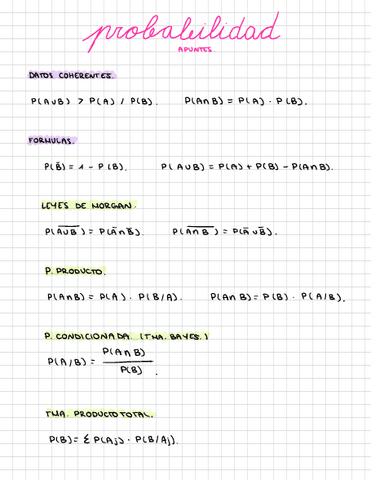 probabilidad
APUNTES.
DATOS COHERENTES.
P(A∪B) > P(A) / P(B).    P(A∩B) = P(A) · P(B).
FORMULAS.
P(B̄) = 1 - P(B).    P(A∪B) = P(A) + P(B) - P(A∩B).
LEYES DE MORGAN.
P(A̅∪̅B̅) = P(Ā∩B̄).    P(A̅∩̅B̅) = P(Ā∪B̄).
P. PRODUCTO.
P(A∩B) = P(A) · P(B/A).    P(A∩B) = P(B) · P(A/B).
P. CONDICIONADA. (TMA. BAYES.)
P(A/B) = P(A∩B) / P(B).
TMA. PRODUCTO TOTAL.
P(B) = Σ P(Aj) · P(B/Aj).